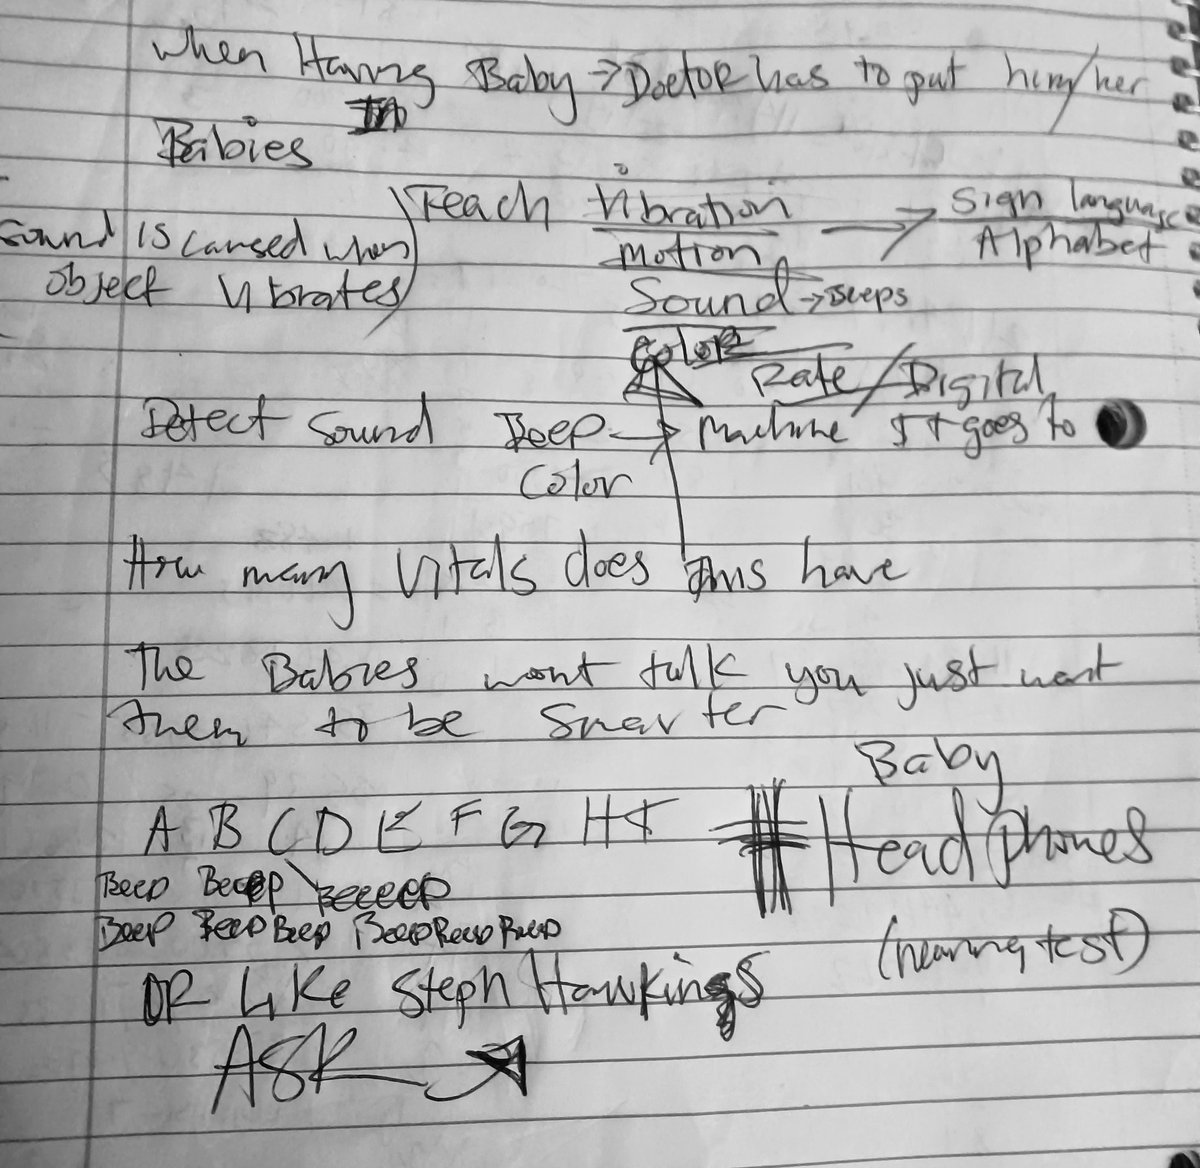 When Having Baby → Doctor has to put him/her
In
Babies
Teach Vibration → Sign language
Motion Alphabet
Sound is caused when
object vibrates
Sound → Beeps
Color
Rate/Digital
Detect Sound Beep → Machine It goes to
Color
How many Vitals does this have
The Babies wont talk you just want
them to be Smarter
Baby
A B C D E F G H I # Headphones
Beep Beeep Beeeeep
Beep Beep Beep Beep Beep Beep
(hearing test)
OR Like Steph Hawkings
ASK